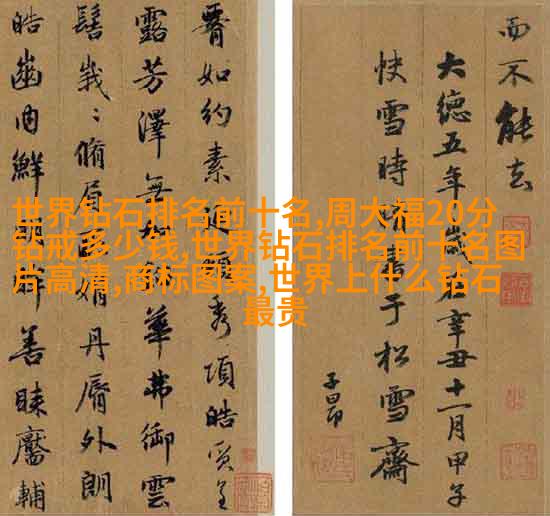 如約素延頸秀項皓質呈
露芳澤無華弗御雲
髻峩〻脩眉娟丹脣外朗
皓齒内鮮明眸善睞靨輔
而不能去
大德五年歲在辛丑十一月甲子
快雪時晴書于松雪齋
子昂
世界钻石排名前十名,周大福20分
钻戒多少钱,世界钻石排名前十名图
片高清,商标图案,世界上什么钻石
最贵